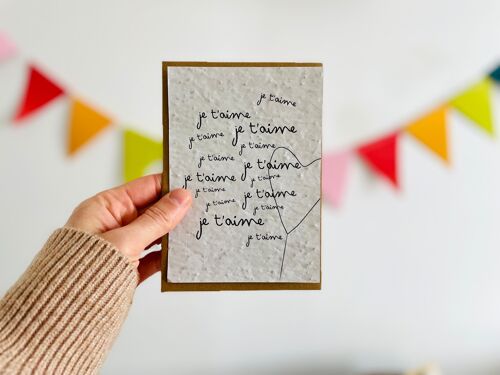 je t'aime
je t'aime
je t'aime
je t'aime
je t'aime
je t'aime
je t'aime
je t'aime
je t'aime
je t'aime
je t'aime
je t'aime
je t'aime
je t'aime